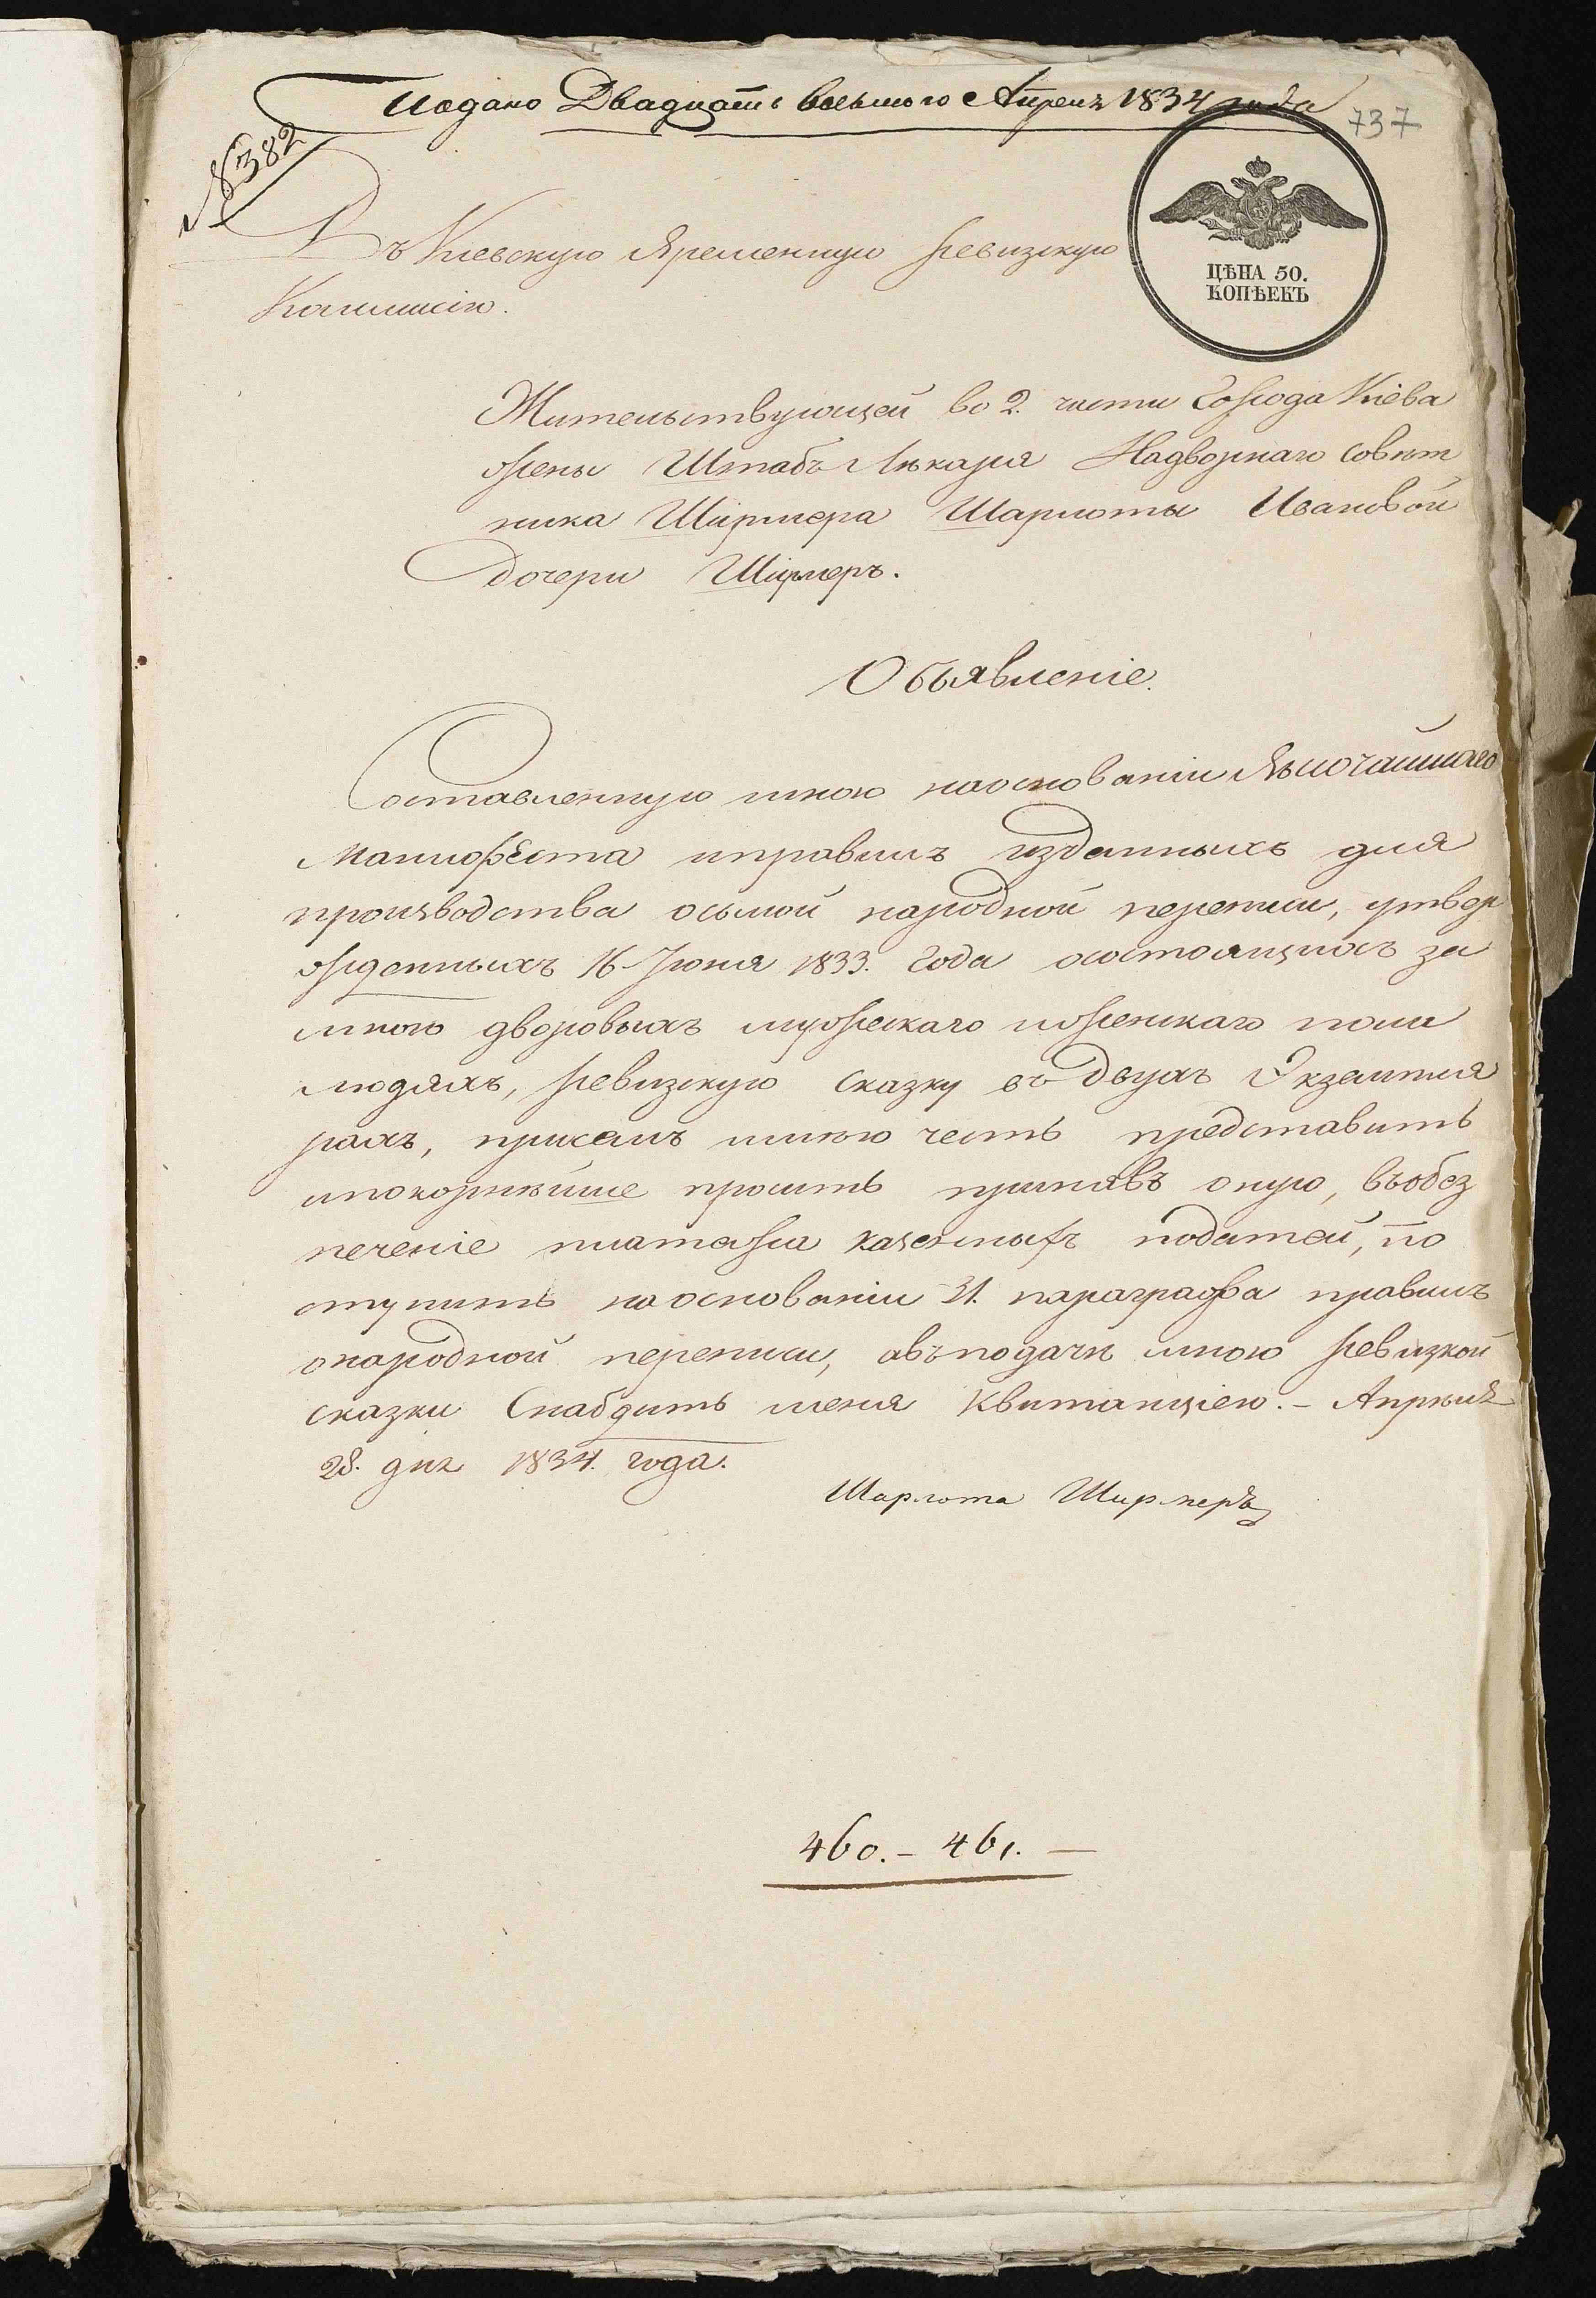 Подано Двадцать восьмого Апреля 1834 года
737
№382
ЦѢНА 50.
КОПѢЕКЪ
Въ Кіевскую Временную ревизскую
Коммисію.
Жительствующей во 2. части города Кіева
жены Штабъ Лѣкаря Надворнаго Совѣт
ника Ширмера Шарлоты Ивановой
дочери Ширмеръ.
Объявленіе.
Составленную мною наосновании Высочайшаго
Манифеста иправилъ изданныхъ для
производства осьмой народной переписи, утвер
жденныхъ 16 Іюня 1833. года осостоящихъ за
мною дворовыхъ мужескаго иженскаго пола
людяхъ, ревизскую сказку въ двухъ Экземпля
рахъ, присемъ имѣю честь представить
ипокорнѣйше просить принявъ оную, въобез
печеніе платежа казенныхъ податей, по
ступить наоснованіи 31. параграфа правилъ
онародной переписи, авъподачѣ мною ревизкой
сказки Снабдить меня Квитанціею. - Апрѣля
28. дня 1834. года.
Шарлота Ширмеръ
460. - 461. -